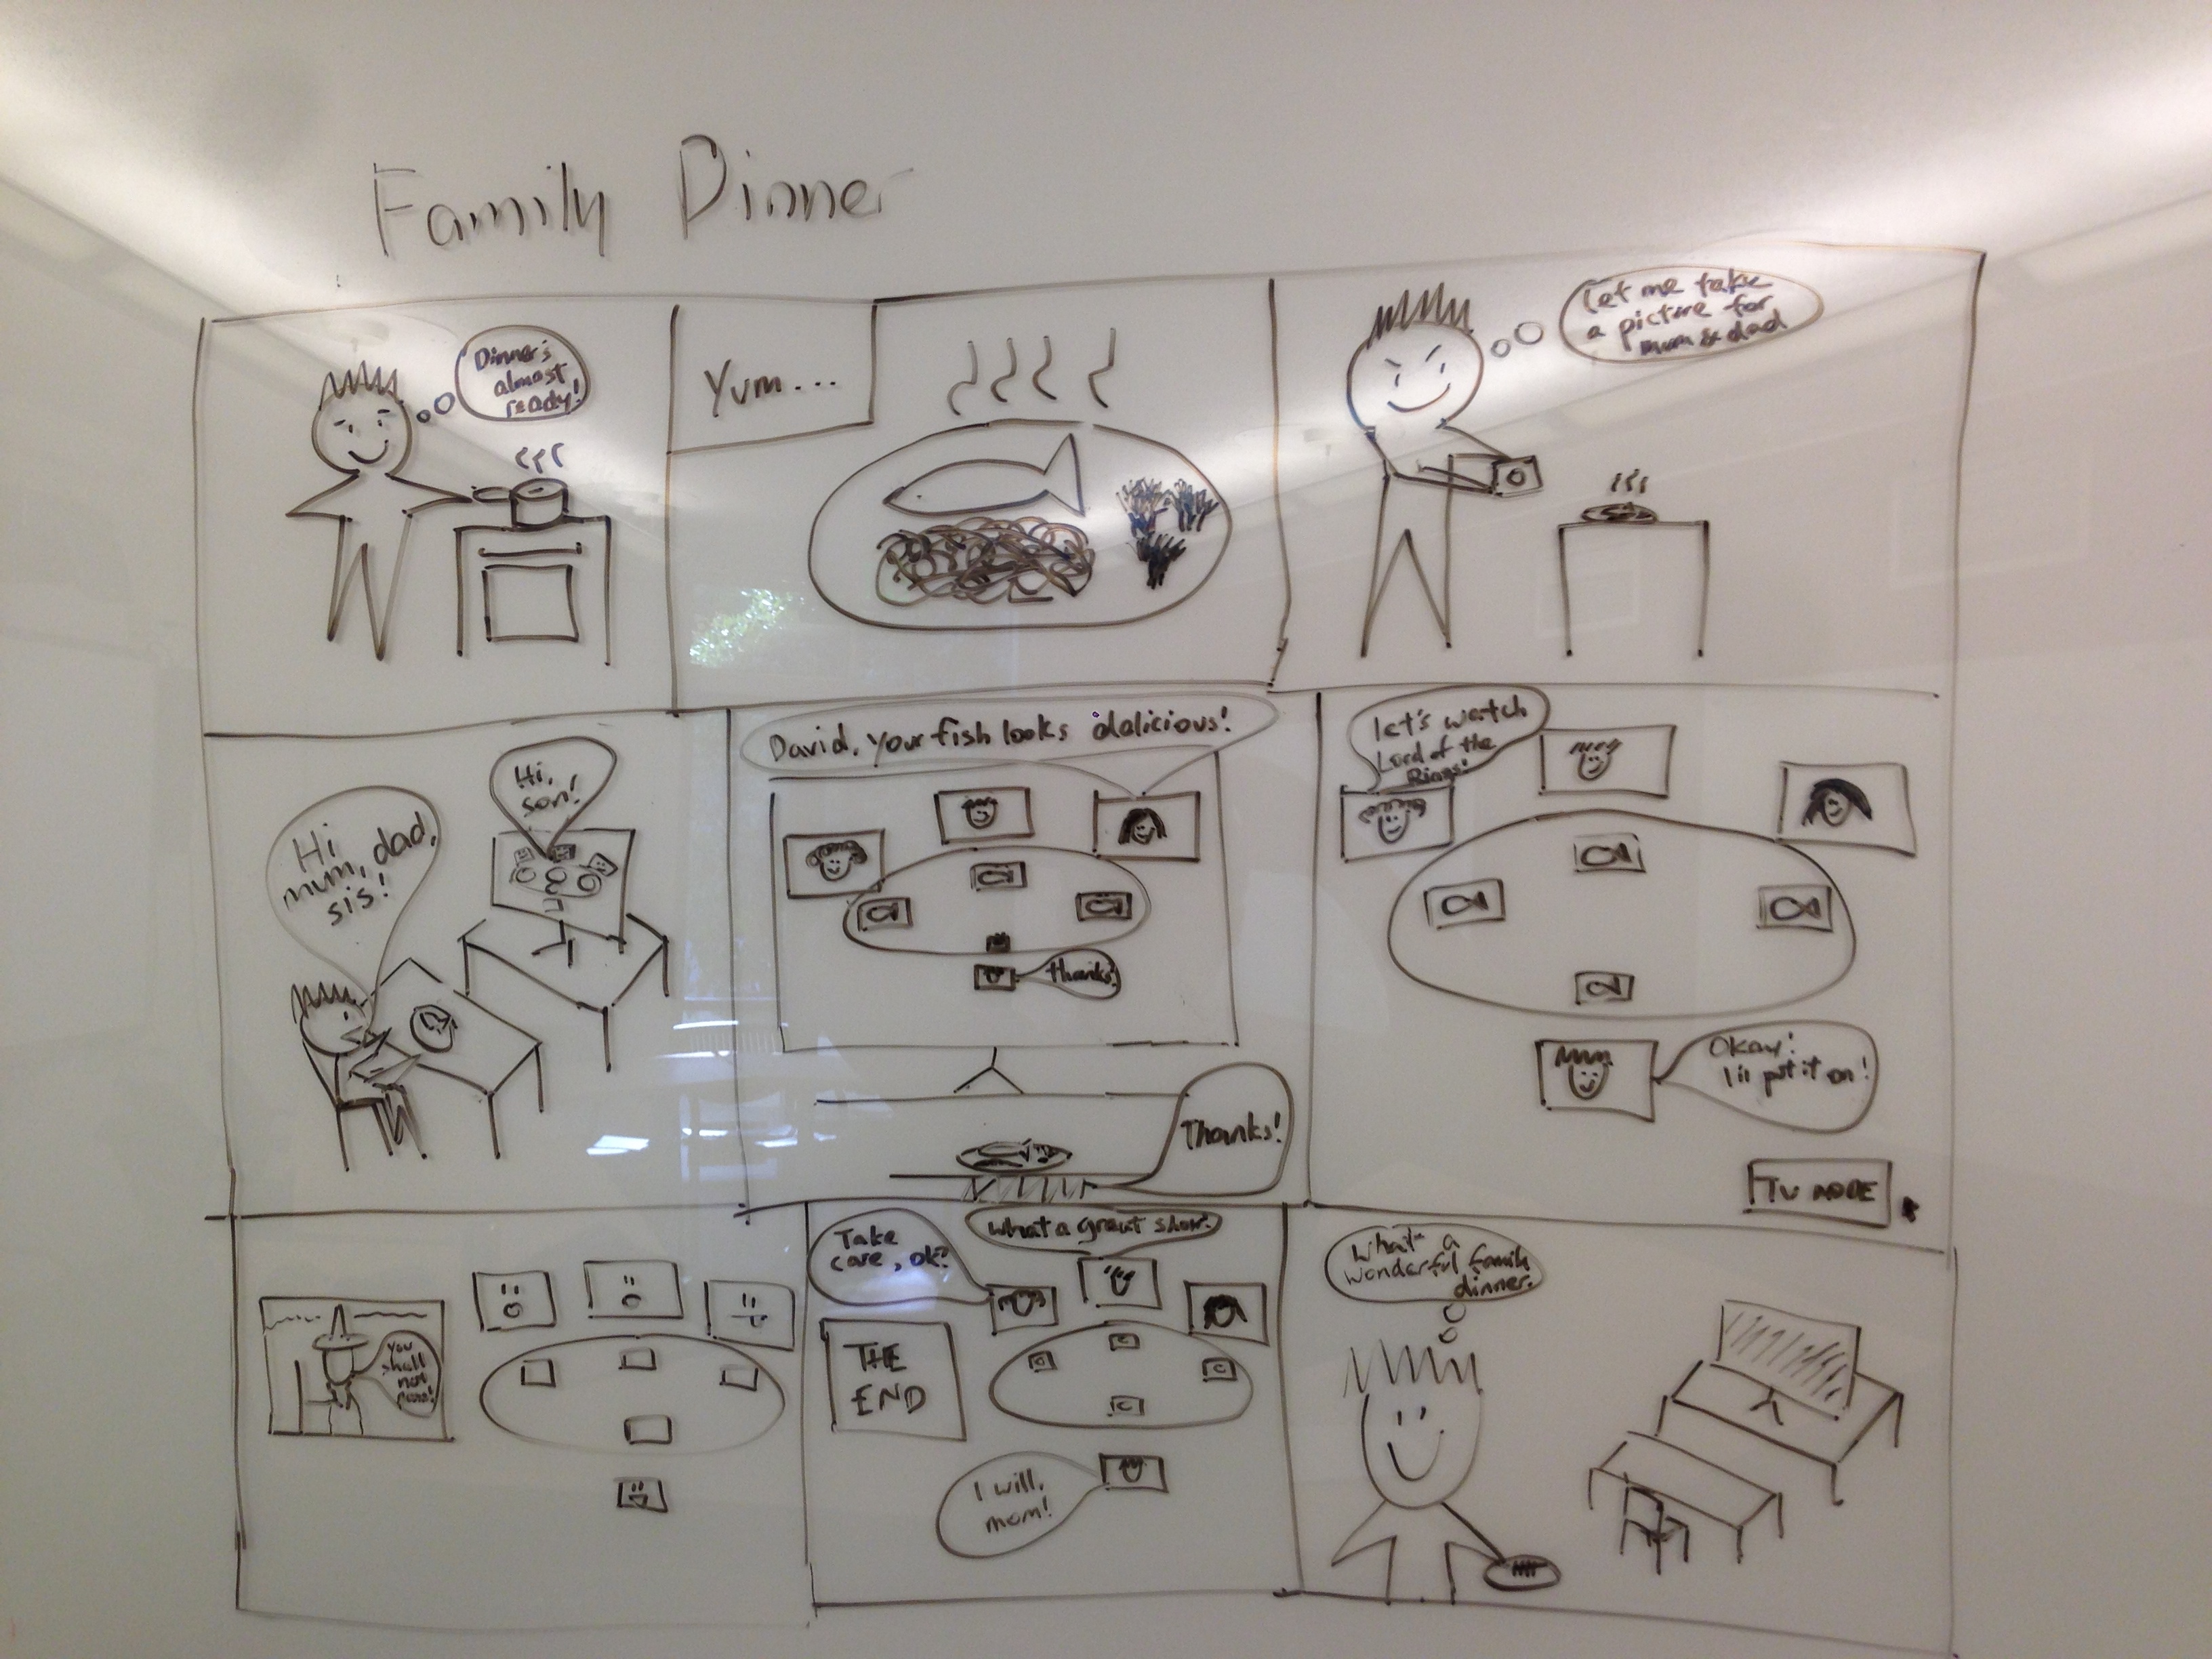 Family Dinner
Dinner's
almost
ready!
Yum...
Let me take
a picture for
mum & dad
Hi
mum, dad,
sis!
Hi,
son!
David, your fish looks delicious!
thanks!
Thanks!
let's watch
Lord of the
Rings!
Okay!
I'll put it on!
TV MODE
You
shall
not
pass!
Take
care, ok?
What a great show.
THE
END
I will,
mom!
What a
wonderful family
dinner.